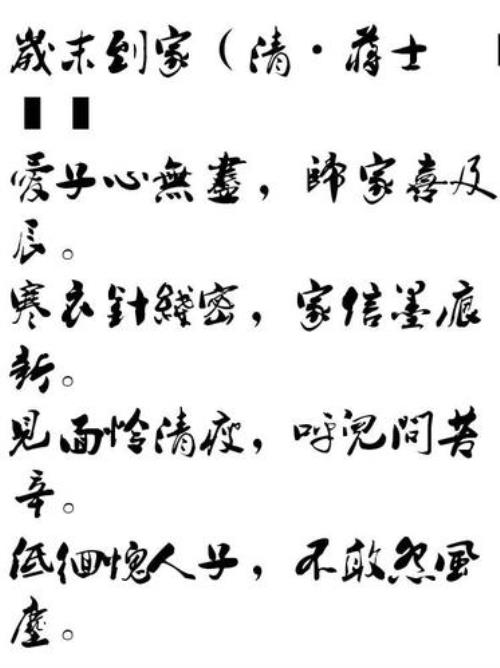 歲末到家（清·蔣士
愛子心無盡，歸家喜及
辰。
寒衣針綫密，家信墨痕
新。
見面怜清瘦，呼兒問苦
辛。
低徊愧人子，不敢怨風
塵。